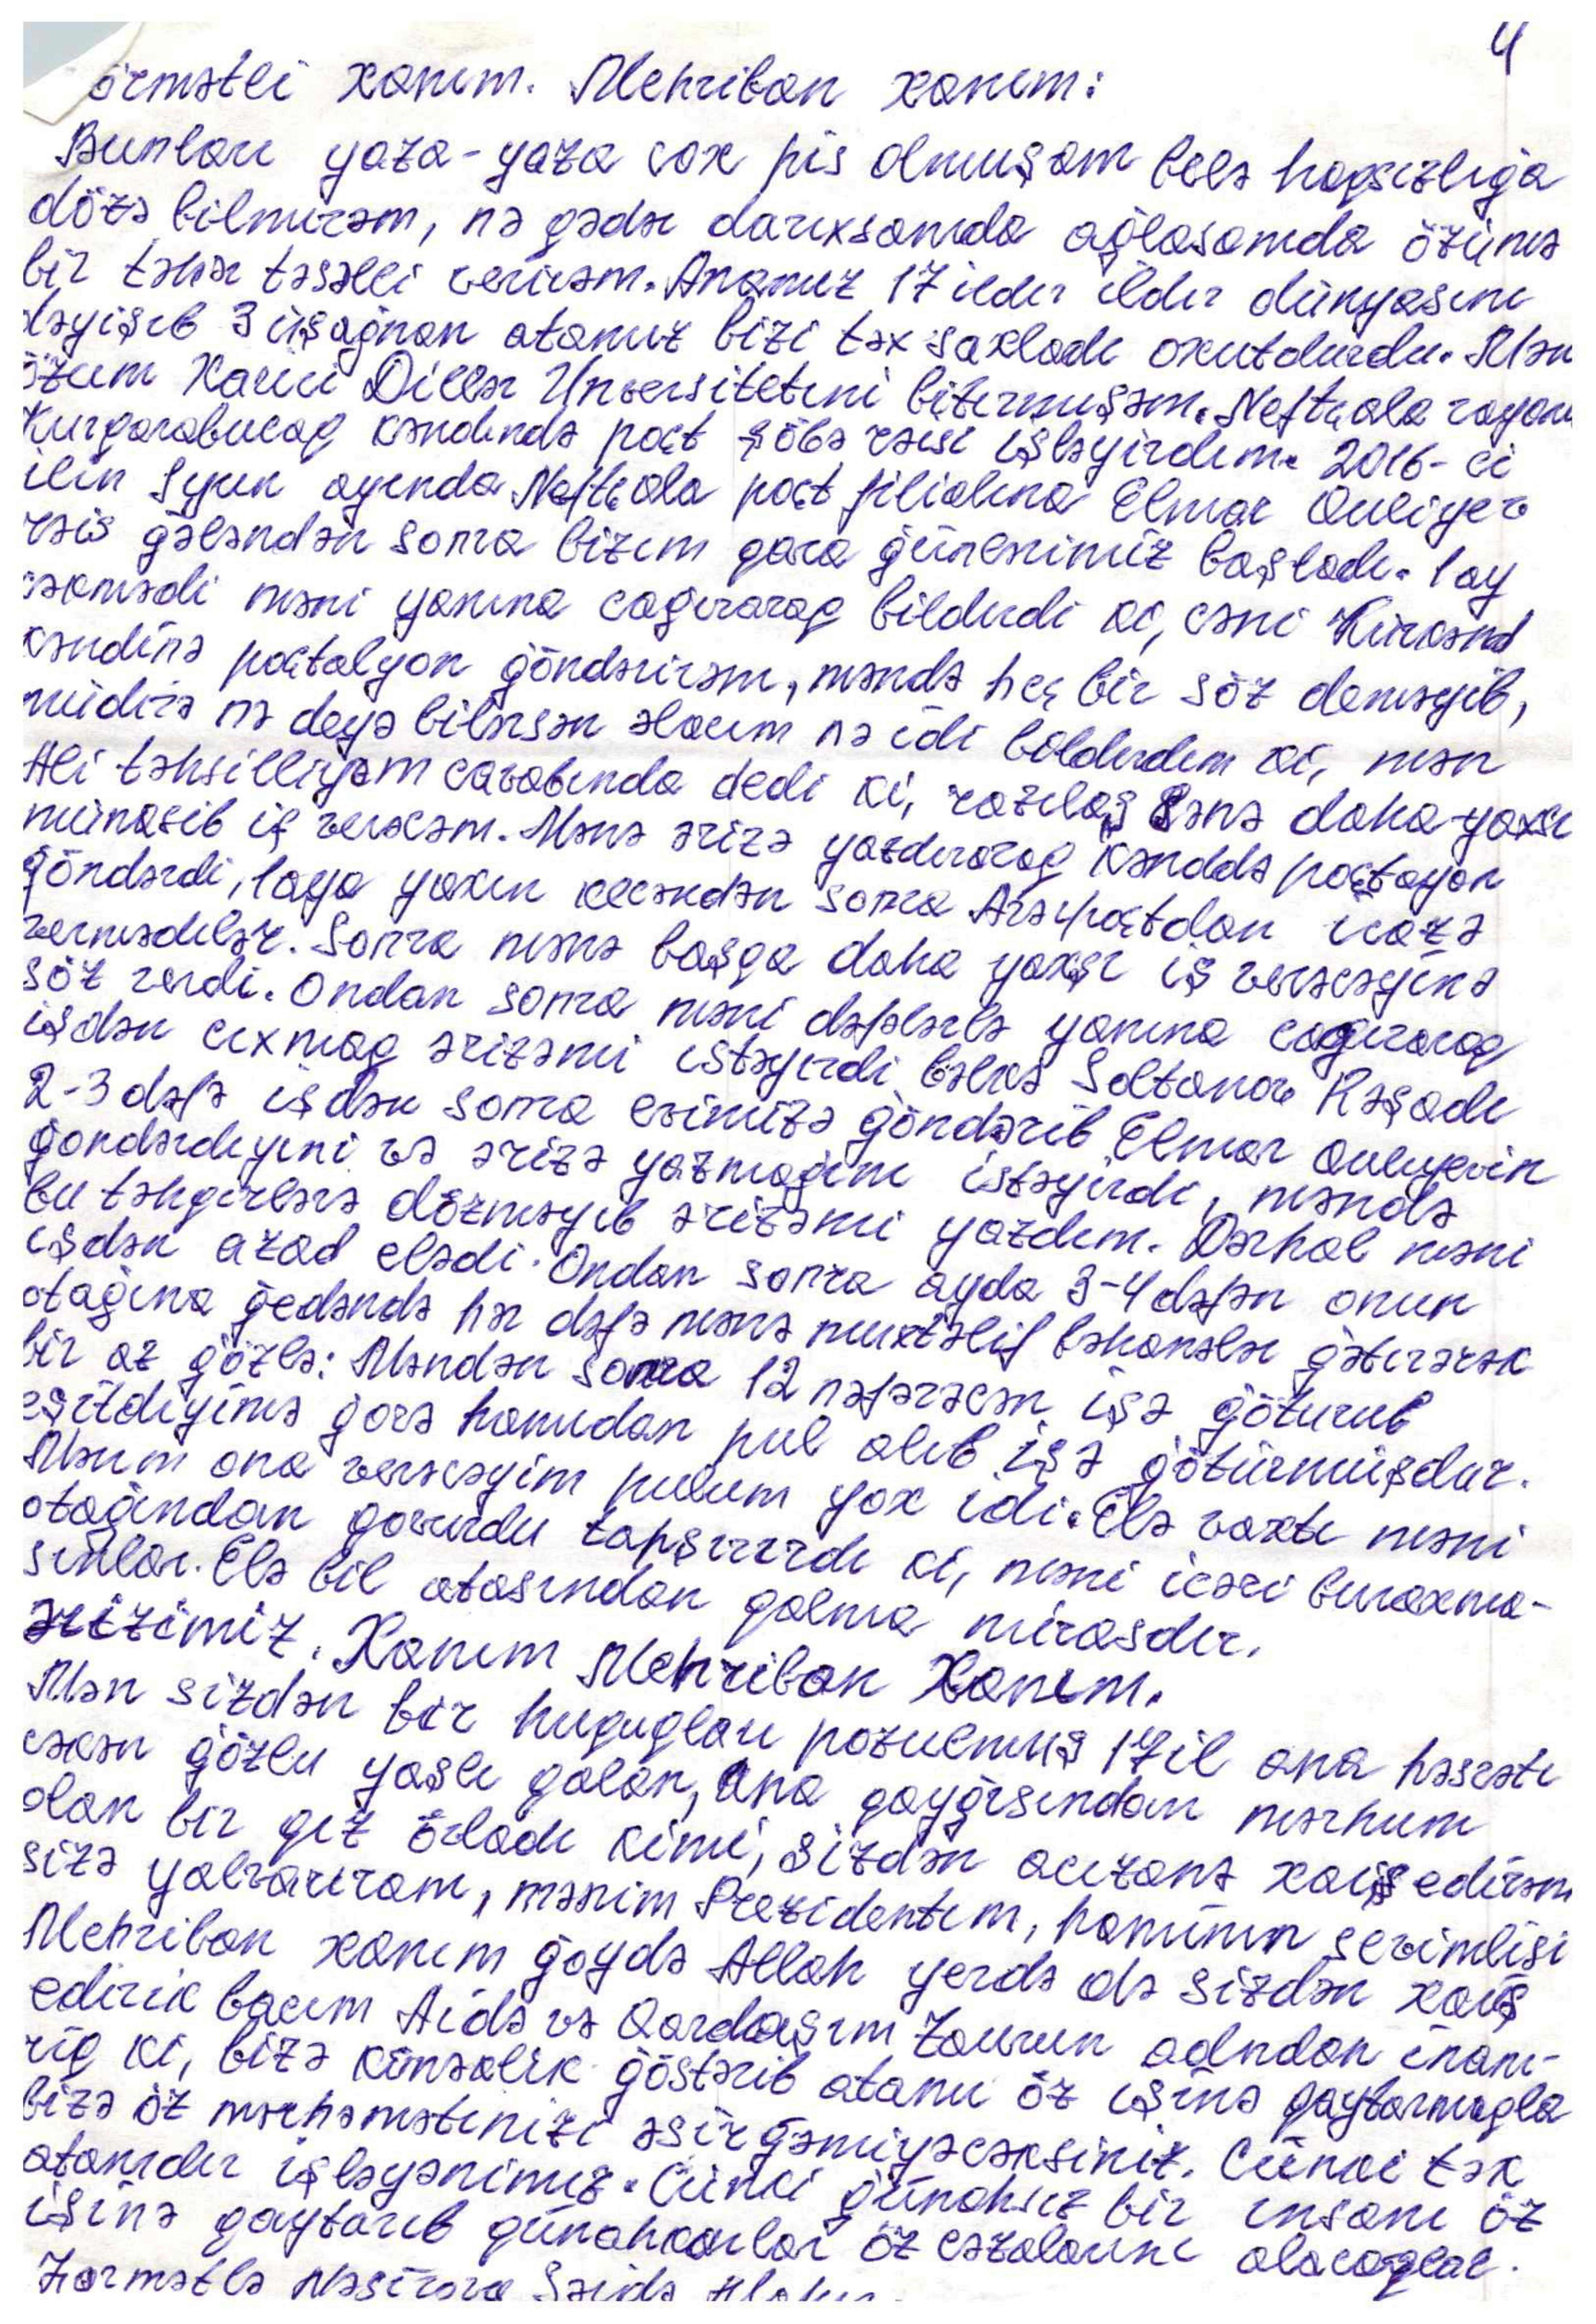 4
örmətli xanım. Mehriban xanım:
Bunları yaza-yaza cox pis olmuşam belə haqsızlığa
dözə bilmirəm, nə qədər darıxsamda ağlasamda özümə
bir təhər təsəlli verirəm. Anamız 17 ildir ildir dünyasını
dəyişib 3 uşağnan atamız bizi təx saxladı oxutdurdu. Mən
özüm Xarici Dillər Unversitetini bitirmişəm. Neftçala rayonu
Kürqarabucaq kəndində poçt şöbə rəisi işləyirdim. 2016-ci
ilin Iyun ayında Neftçala poçt filialına Elmar Quliyev
rəis gələndən sonra bizim qara günlərimiz başladı. 1 ay
cəkmədi məni yanına cagıraraq bildirdi ki, səni Kürkənd
kəndinə poçtalyon göndərirəm, məndə heç bir söz deməyib,
müdirə nə deyə bilərsən əlacım nə idi bildirdim ki, mən
Ali təhsilliyəm cavabında dedi ki, razılaş Sənə daha yaxşı
münasib iş verəcəm. Mənə ərizə yazdıraraq kənddə poçtayon
göndərdi, 1 aya yaxın kecəndən sonra Azərpoçtdan icazə
vermədilər. Sonra mənə başqa daha yaxşı iş verəcəyinə
söz verdi. Ondan sonra məni dəfələrlə yanına cagıraraq
işdən cıxmaq ərizəmi istəyirdi bəlkə Soltanov Rəşadı
2-3 dəfə işdən sonra evimizə göndərib Elmar Quliyevin
göndərdiyini və ərizə yazmağımı istəyirdi, məndə
bu təhqirlərə dözməyib ərizəmi yazdım. Dərhal məni
işdən azad elədi. Ondan sonra ayda 3-4 dəfən onun
otağına gedəndə hər dəfə mənə muxtəlif bəhanələr gətirərək
bir az gözlə: Məndən sonra 12 nəfərəcən işə göturub
eşitdiyimə görə hamıdan pul alıb işə götürmüşdür.
Mənim ona verəcəyim pulum yox idi. Elə vaxtı məni
otağından qovurdu tapşırırdı ki, məni icəri buraxma-
sınlar. Elə bil atasından qalma mirasdır.
əzizimiz. Xanım Mehriban Xanım.
Mən sizdən bir huquqları pozulmuş 17 il ana həsrəti
cəkən gözlu yaşlı qalan, Ana qayğısından mərhum
olan bir qız övladı kimi, sizdən acızanə xaiş edirəm
sizə yalvarıram, mənim Prezidentim, hamının sevimlisi
Mehriban xanım göydə Allah yerdə də sizdən xaiş
edirik bacım Aidə və Qardaşım Zaurun adından inanı-
rıq ki, bizə köməklik göstərib atamı öz işinə qaytarmaqla
bizə öz mərhəmətinizi əsirgəmiyəcəksiniz. Cünki tək
atamdır işləyənimiz. Cünki günahsız bir insanı öz
işinə qaytarıb günahkarlar öz cəzalarını alacaqlar.
Hörmətlə Nəsirova Səidə